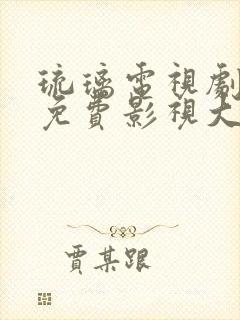 琉璃電視劇
免費影視大
賈某跟